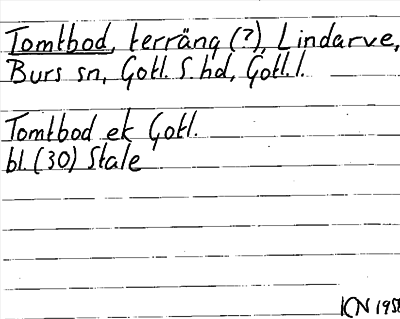 Tomtbod, terräng (?), Lindarve,
Burs sn, Gotl. S. hd, Gotl. l.
Tomtbod ek Gotl.
bl. (30) Stale
KN 195